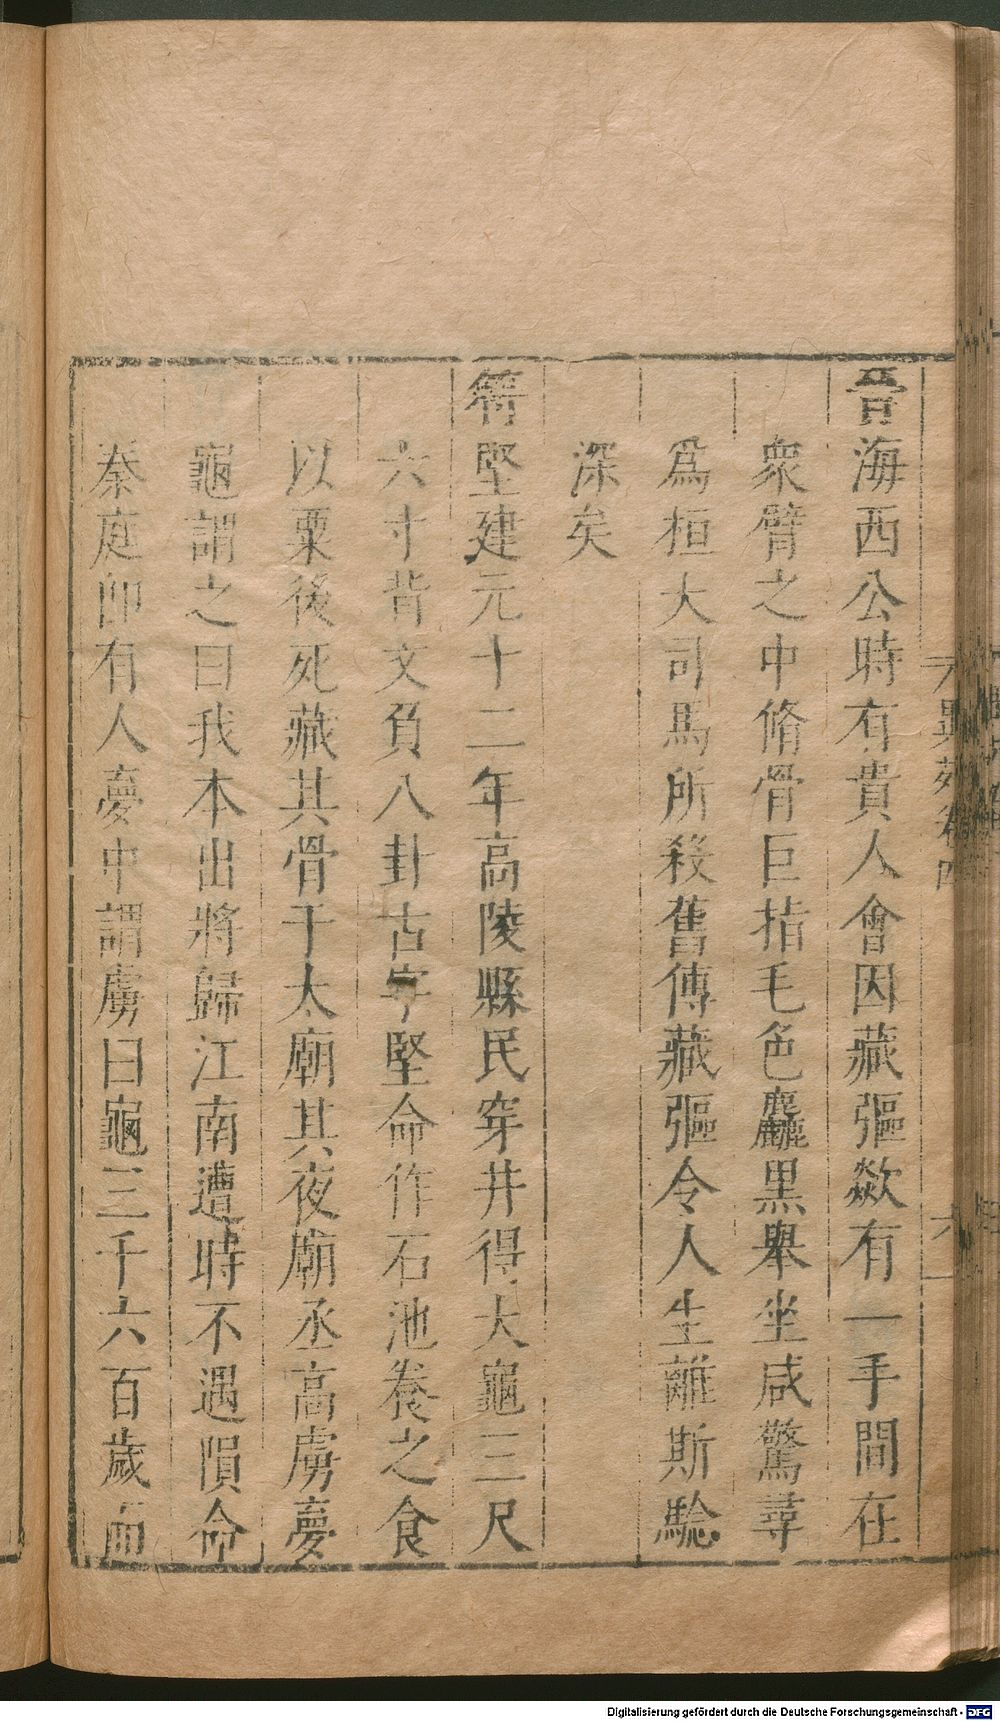 異苑卷四
六
晉海西公時有貴人會因藏彄欻有一手間在
衆臂之中脩骨巨指毛色麤黑舉坐咸驚尋
爲桓大司馬所殺舊傳藏彄令人生離斯驗
深矣
苻堅建元十二年高陵縣民穿井得大龜三尺
六寸背文負八卦古字堅命作石池養之食
以粟後死藏其骨于太廟其夜廟丞高虜夢
龜謂之曰我本出將歸江南遭時不遇隕命
秦庭卽有人夢中謂虜曰龜三千六百歲而
Digitalisierung gefördert durch die Deutsche Forschungsgemeinschaft - DFG